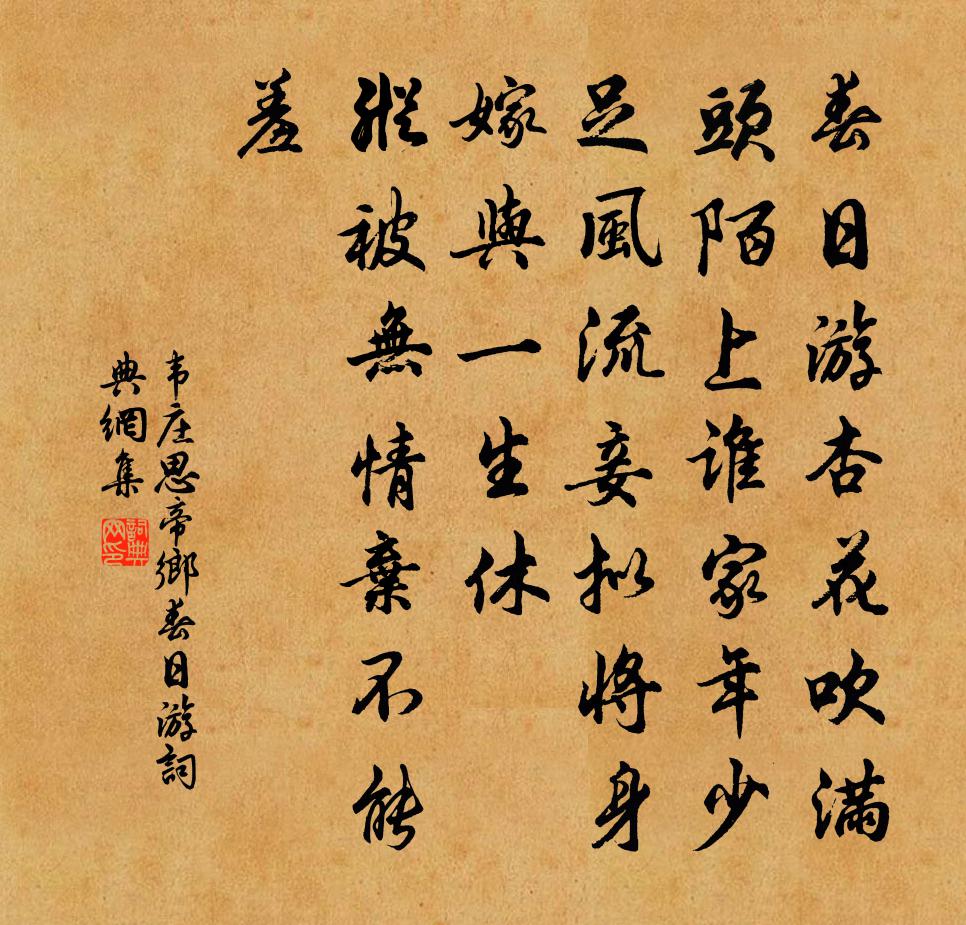 春日游杏花吹满
頭陌上谁家年少
足風流妾拟將身
嫁與一生休
縱被無情棄不能
羞
韦庄思帝鄉春日游詞
典網集
詞典
网印